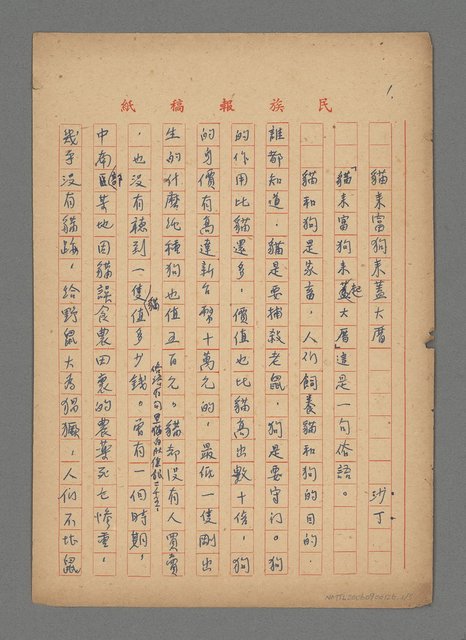 民族報稿紙
1.
貓來富狗來蓋大厝
沙丁
「貓來富狗來蓋起大厝」這是一句俗語。
貓和狗是家畜，人們飼養貓和狗的目的，
誰都知道，貓是要捕殺老鼠，狗是要守门。狗
的作用比貓還多，價值也比貓高出數十倍，狗
的身價有高達新台幣十萬元的，最低一隻剛出
生的什麽純種狗也值五百元。貓却沒有人買賣
，也沒有聽到一隻貓值多少錢。曾有一個時期，
中南部某地因貓誤食農田裏的農藥死亡慘重，
幾乎沒有貓跡，給野鼠大為猖獗，人们不堪鼠